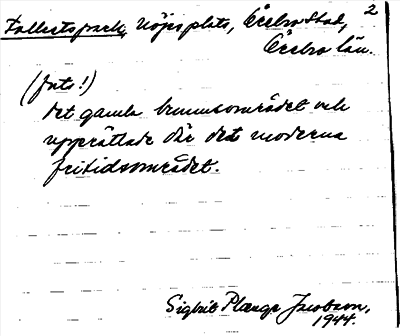 Folketspark, Nöjesplats, Örebro Stad, 2
Örebro län.
(forts!)
det gamla brunnsområdet och
upprättade där det moderna
fritidsområdet.
Sigbrit Plænge Jacobson,
1944.